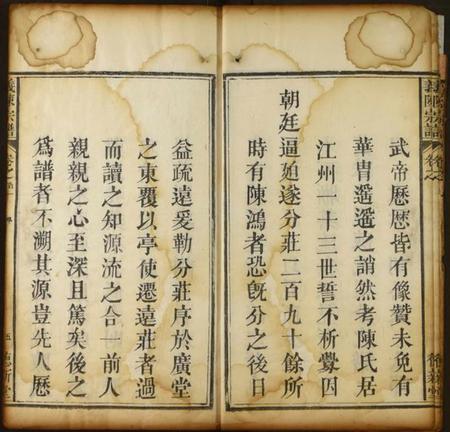 武帝歷歷皆有像贊未免有
華胄遥遥之誚然考陳氏居
江州一十三世誓不析爨因
朝廷逼廹遂分莊二百九十餘所
時有陳鴻者恐既分之後日
益疏遠爰勒分莊序於廣堂
之東覆以亭使遷遠莊者過
而讀之知源流之合一前人
親親之心至深且篤矣後之
爲譜者不溯其源豈先人歷
義陳宗譜
卷之